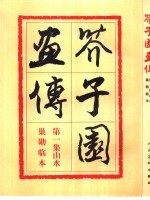 芥子園
畫傳
第一集山水
巢勳临本
芥子園畫傳